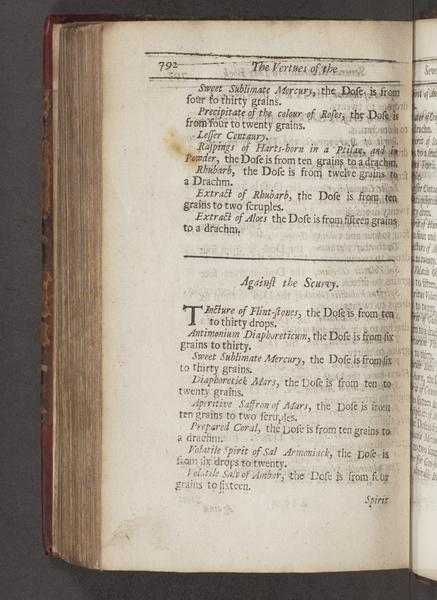 792 The Vertues of the
Sweet Sublimate Mercury, the Dose is from
four to thirty grains.
Precipitate of the colour of Roses, the Dose is
from four to twenty grains.
Lesser Centaury.
Raspings of Harts-horn in a Ptisan, and in
Powder, the Dose is from ten grains to a drachm.
Rhubarb, the Dose is from twelve grains to
a Drachm.
Extract of Rhubarb, the Dose is from ten
grains to two scruples.
Extract of Aloes the Dose is from fifteen grains
to a drachm.
Against the Scurvy.
TIncture of Flint-stones, the Dose is from ten
to thirty drops.
Antimonium Diaphoreticum, the Dose is from six
grains to thirty.
Sweet Sublimate Mercury, the Dose is from six
to thirty grains.
Diaphoretick Mars, the Dose is from ten to
twenty grains.
Aperitive Saffron of Mars, the Dose is from
ten grains to two scruples.
Prepared Coral, the Dose is from ten grains to
a drachm.
Volatile Spirit of Sal Armoniack, the Dose is
from six drops to twenty.
Volatile Salt of Amber, the Dose is from four
grains to sixteen.
Spirit